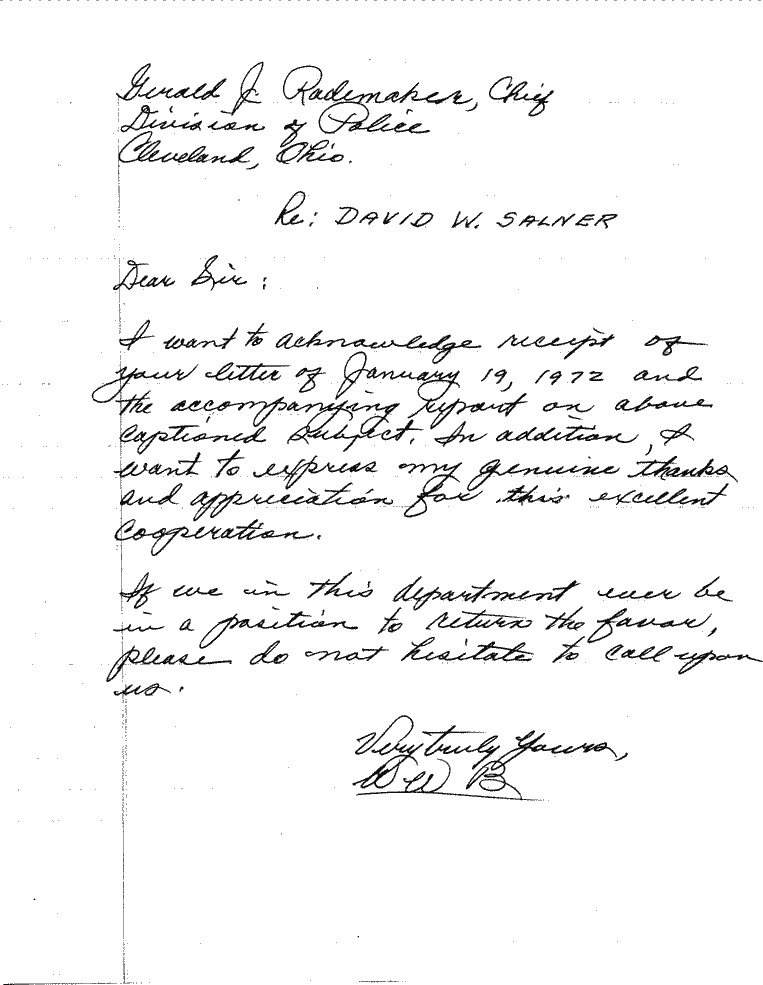 Gerald J. Rademaker, Chief
Division of Police
Cleveland, Ohio.
Re: DAVID W. SALNER
Dear Sir:
I want to acknowledge receipt of
your letter of January 19, 1972 and
the accompanying report on above
captioned subject. In addition, I
want to express my genuine thanks
and appreciation for this excellent
cooperation.
If we in this department ever be
in a position to return the favor,
please do not hesitate to call upon
us.
Very truly yours,
W W B